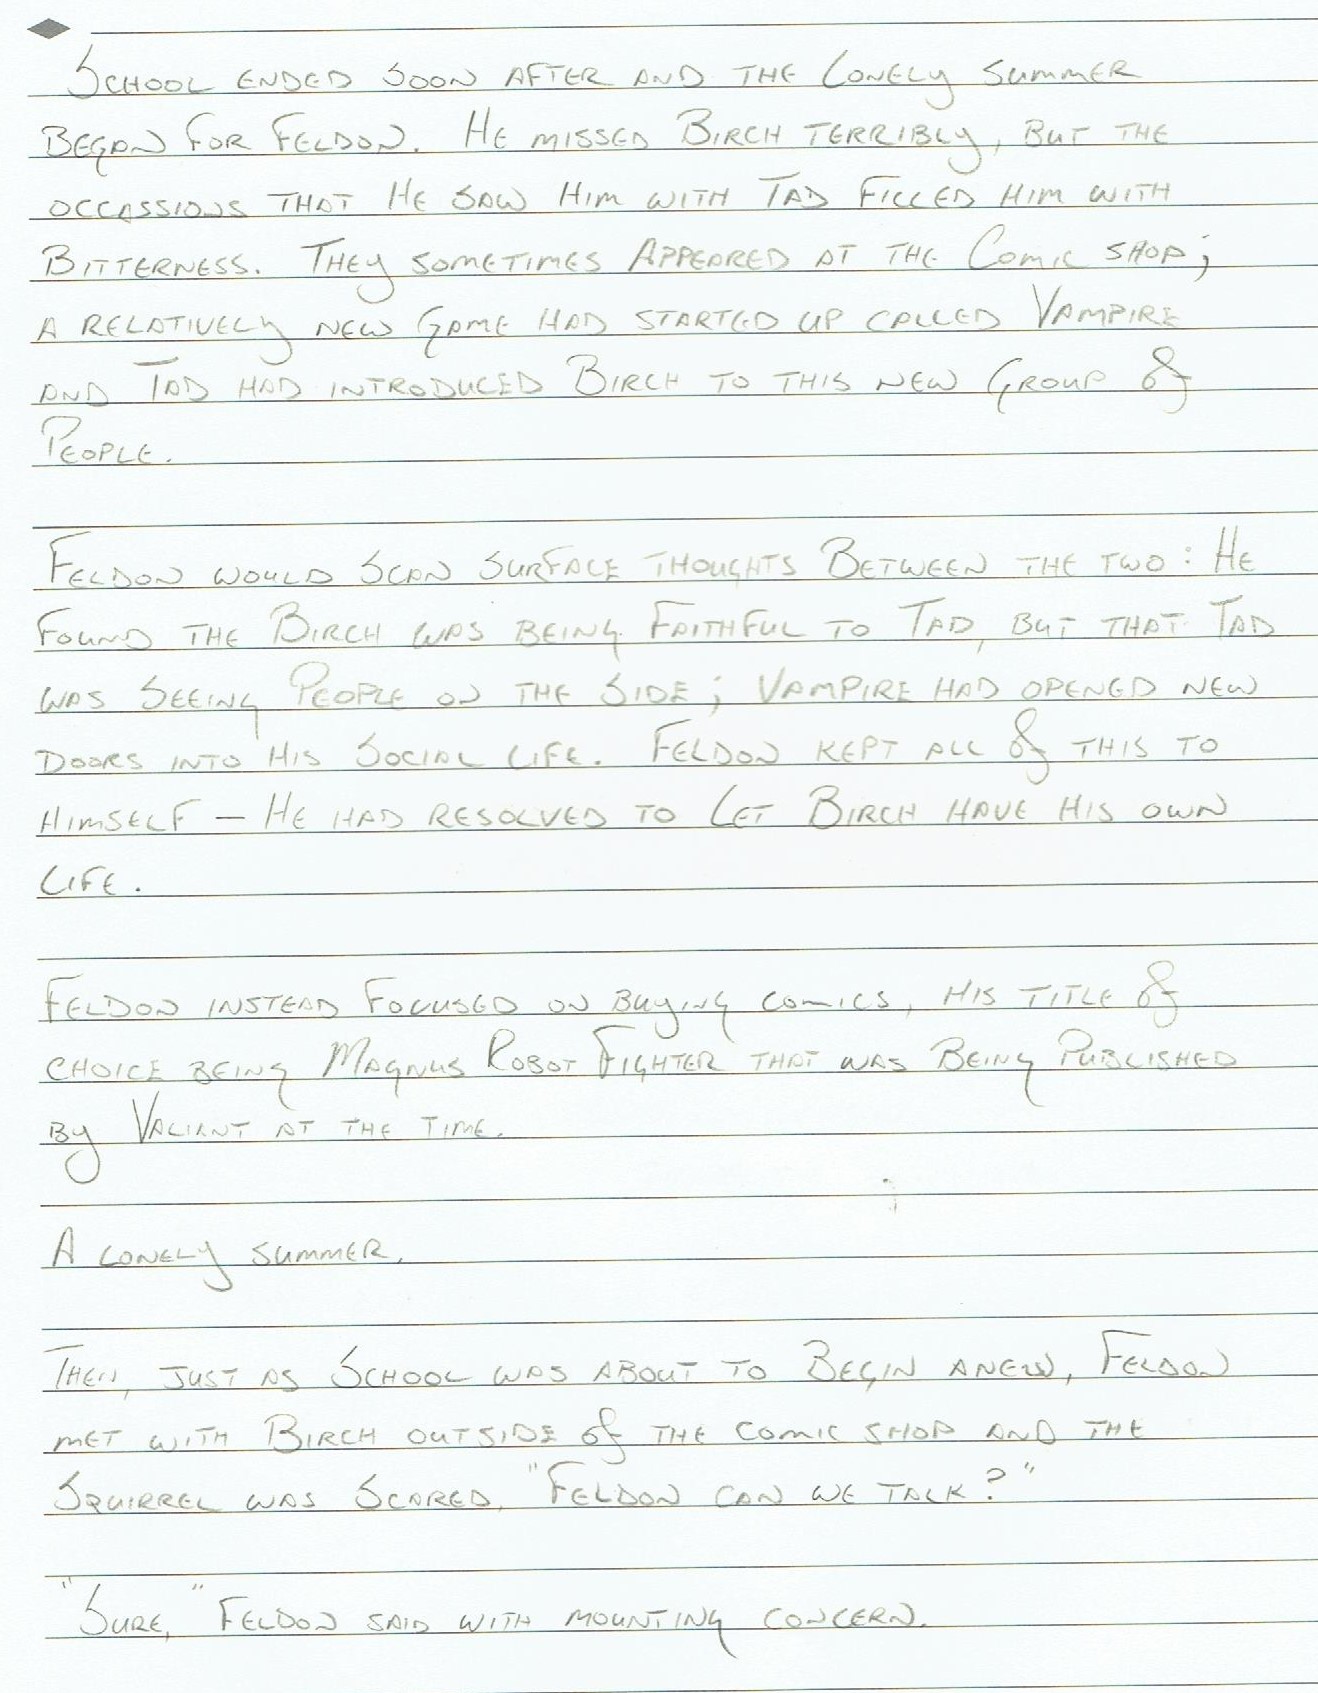 School ended soon after and the lonely summer
began for Feldon. He missed Birch terribly, but the
occassions that he saw him with Tad filled him with
bitterness. They sometimes appeared at the comic shop;
a relatively new game had started up called Vampire
and Tad had introduced Birch to this new group of
people.
Feldon would scan surface thoughts between the two: He
found the Birch was being faithful to Tad, but that Tad
was seeing people on the side; Vampire had opened new
doors into his social life. Feldon kept all of this to
himself — he had resolved to let Birch have his own
life.
Feldon instead focused on buying comics, his title of
choice being Magnus Robot Fighter that was being published
by Valiant at the time.
A lonely summer.
Then, just as school was about to begin anew, Feldon
met with Birch outside of the comic shop and the
squirrel was scared, "Feldon can we talk?"
"Sure," Feldon said with mounting concern.